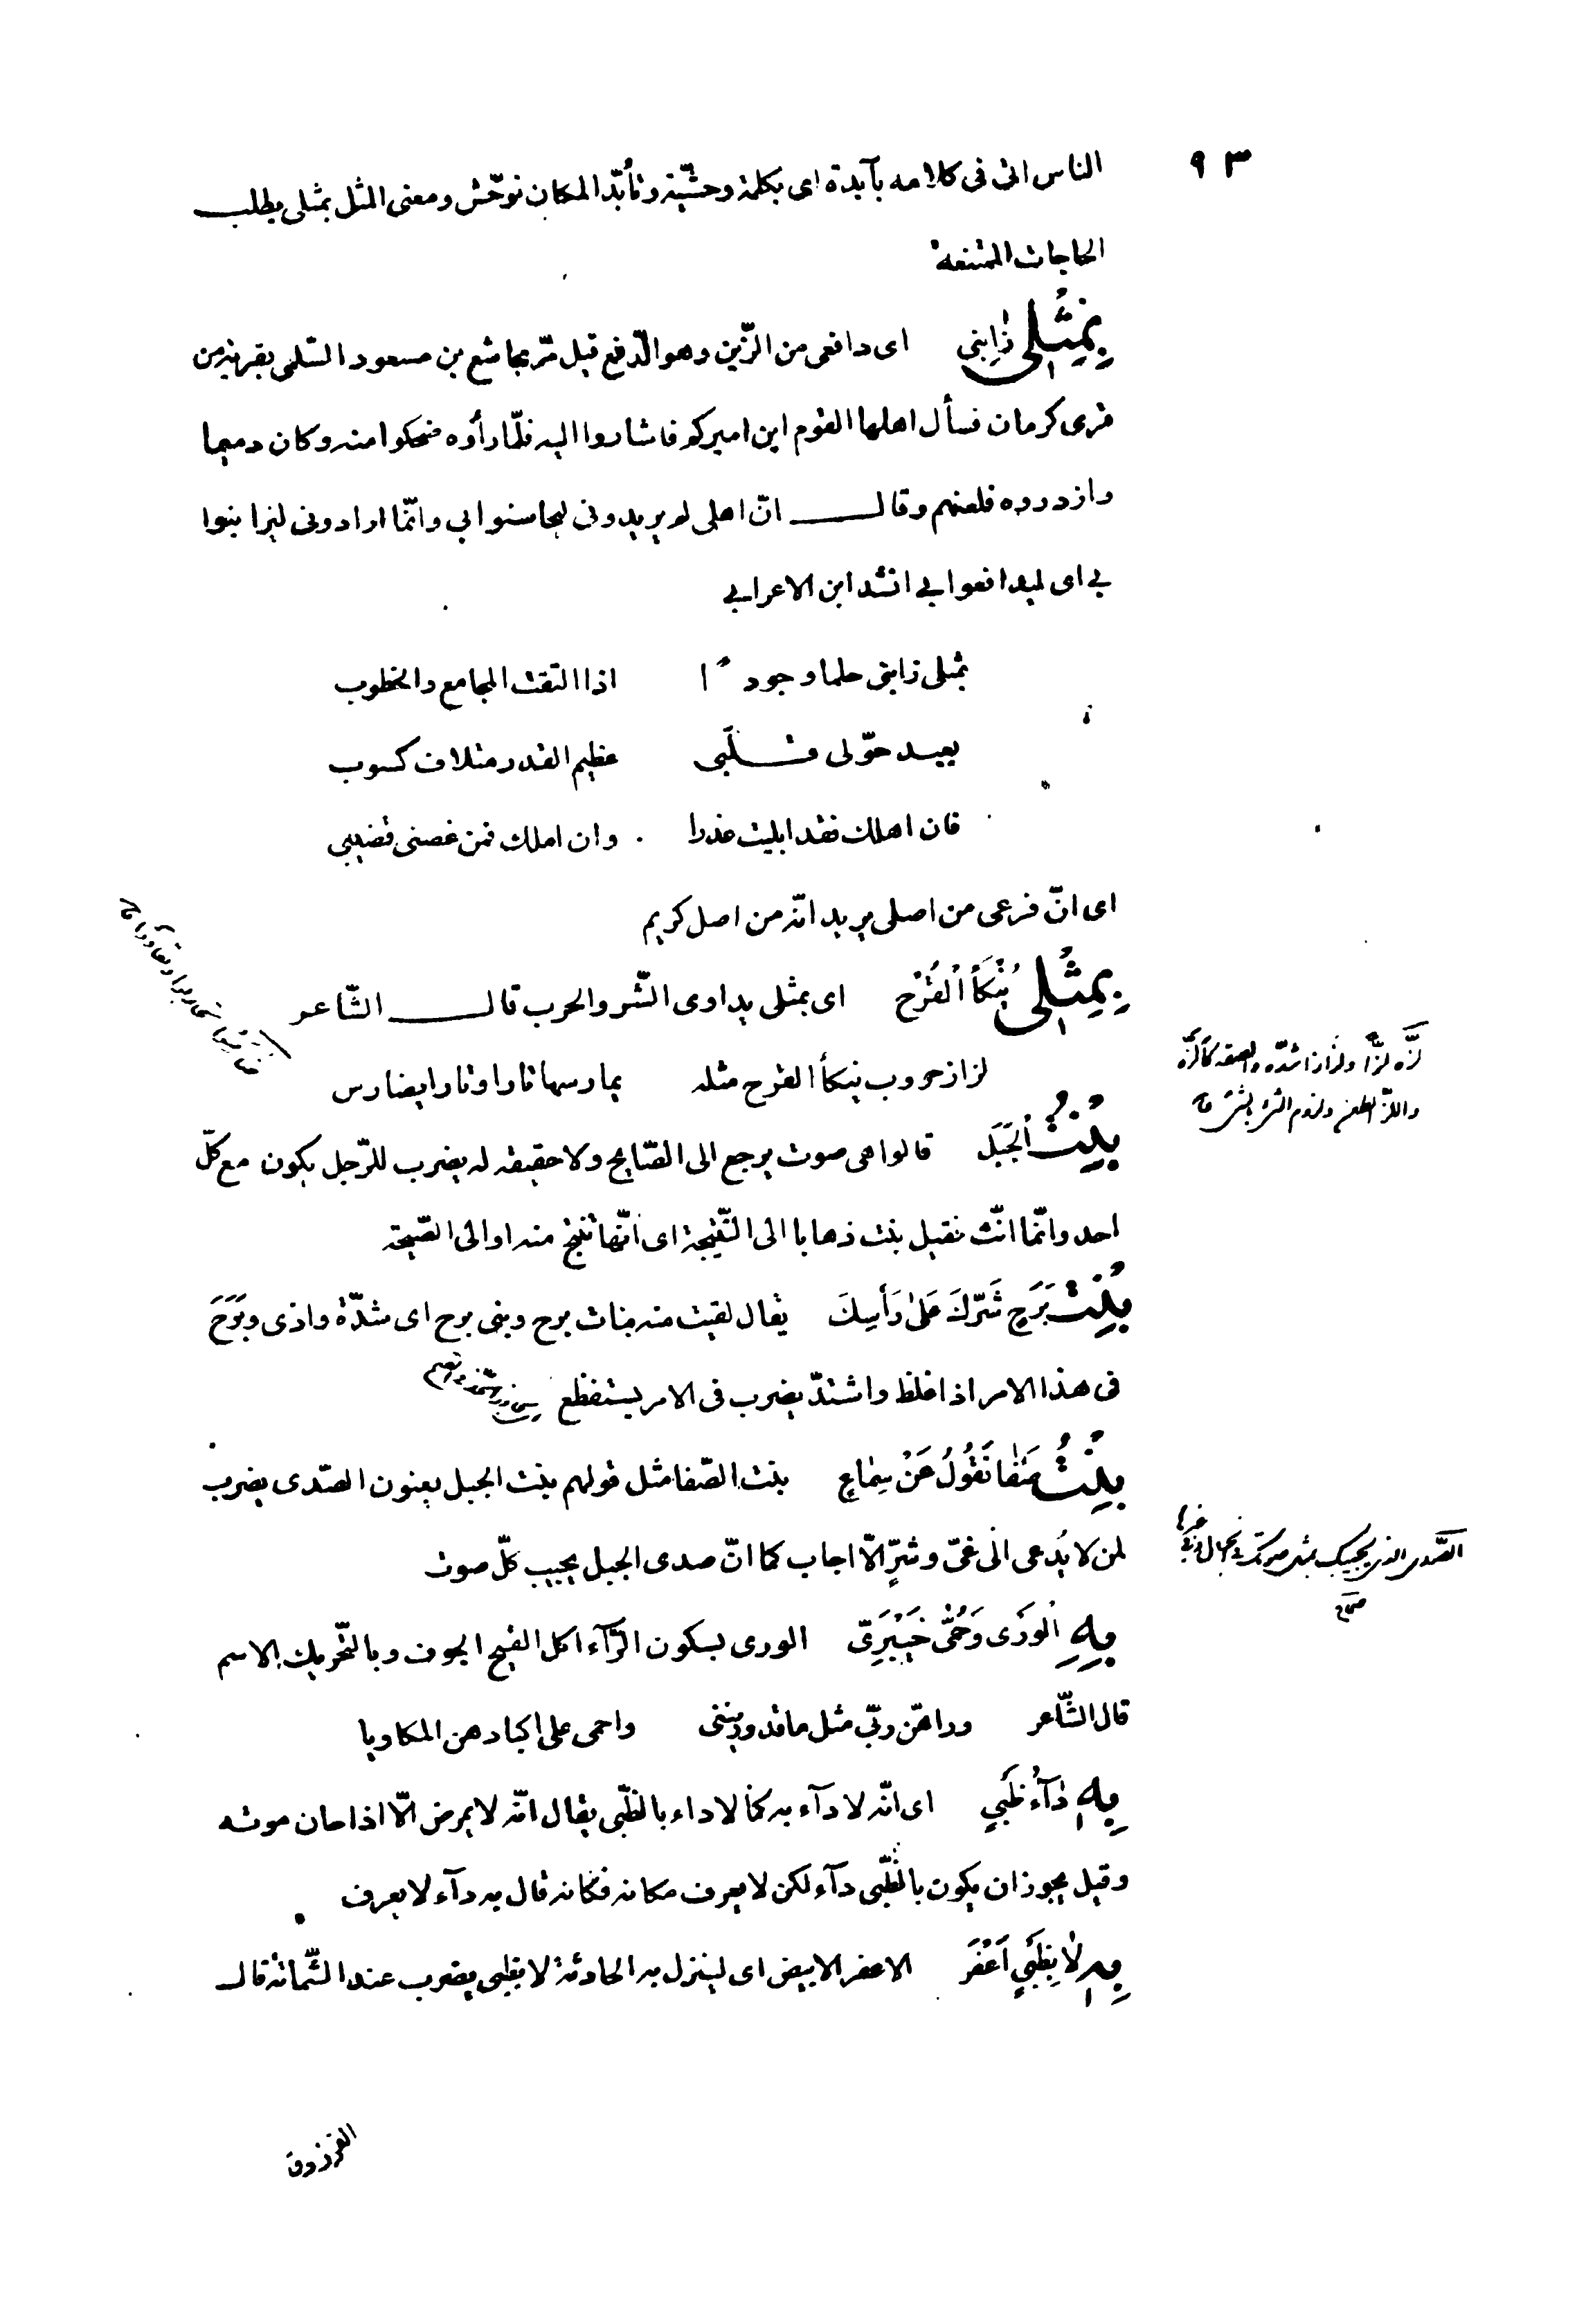 ٩٣
الناس اتى فى كلامه بآبدة اى بكلمة وحشيّة وتأبّد المكان توحّش ومعنى المثل بمثلى يطلب
الحاجات الممتنعة
بِمِثْلِى زَابِنِى اى دافعى من الزّبن وهو الدّفع قيل مرّ مجاشع بن مسعود السّلمى بقرية من
قرى كرمان فسأل اهلها القوم اين اميركم فاشاروا اليه فلمّا رأوه ضحكوا منه وكان دميما
وازدروه فلعنهم وقال انّ اهلى لم يريدونى ليحاسنوا بى وانّما ارادونى ليزابنوا
بى اى ليدافعوا بى انشد ابن الاعرابى
بمثلى زابنى حلما وجودا اذا التقت المجامع والخطوب
بعيد حوّلى قلّبى عظيم القدر متلاف كسوب
فان اهلك فقد ابليت عذرا وان املك فمن غصنى قضيبى
اى انّ فرعى من اصلى يريد انّه من اصل كريم
بِمِثْلِى يُنْكَأُ الْقَرْحُ اى بمثلى يداوى الشّر والحرب قال الشّاعر
لزاز حروب ينكأ القرح مثله يمارسها تارا وتارا يضارس
لزّه لزّا ولزازا شدّه والصقه كألزّه
واللزّ الطعن ولزوم الشئ بالشئ ق
بِنْتُ الْجَبَل قالوا هى صوت يرجع الى الصّايح ولا حقيقه له يضرب للرّجل يكون مع كلّ
احد وانّما انّث فقيل بنت ذهابا الى النّتيجة اى انّها تنتج منه او الى الصّيحة
بِنْتُ بَرَحٍ شَرَّكَ عَلىٰ رَأسِكَ يقال لقيت منه بنات برح وبنى برح اى شدّة واذى وبَرَحَ
فى هذا الامر اذا غلظ واشتدّ يضرب فى الامر يستفظع
بِنْتُ صَفَا تَقُولُ عَنْ سِمَاعٍ بنت الصّفا مثل قولهم بنت الجبل يعنون الصّدى يضرب
لمن لا يُدعى الى غىّ وشرٍّ الّا اجاب كما انّ صدى الجبل يجيب كلّ صوت
الصّدى الذى يجيبك بمثل صوتك فى الجبال وغيرها
صحاح
بِهِ الْوَرَى وَحُمَّى خَيْبَرِىّ الورى بسكون الرّآء اكل القيح الجوف وبالتّحريك الاسم
قال الشّاعر وراهنّ ربّى مثل ما قد ورينى واحمى على اكبادهن المكاويا
بِهِ دَآءُ ظَبْيٍ اى انّه لا دآء به كما لا داء بالظّبى يقال انّه لا يمرض الّا اذا حان موته
وقيل يجوز ان يكون بالظّبى دآء لكن لا يعرف مكانه فكانه قال به دآء لا يعرف
بِهِ لَا بِظَبْيٍ اَعْفَرَ الاعفر الابيض اى لينزل به الحادثة لا بظبى يضرب عند الشّماتة قال
الفرزدق